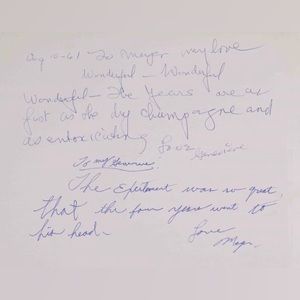 Aug 10-61 To Mayer my love
Wonderful - Wonderful
Wonderful - The Years are as
fast as the dry champagne and
as entoxicating Love Genevieve
To my Genevieve!
The Experiment was so great,
that the four years went to
his head. Love
Mayer.